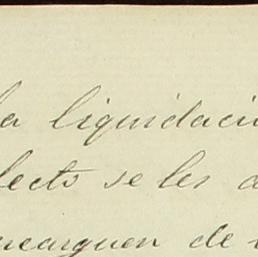 la liquidaci
lecto se les
ncarguen de